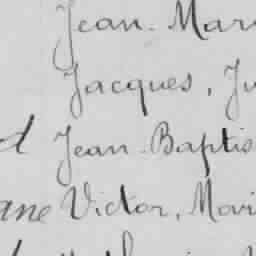 Jean. Mari
Jacques, Ju
d Jean. Baptis
ane Victor, Mari